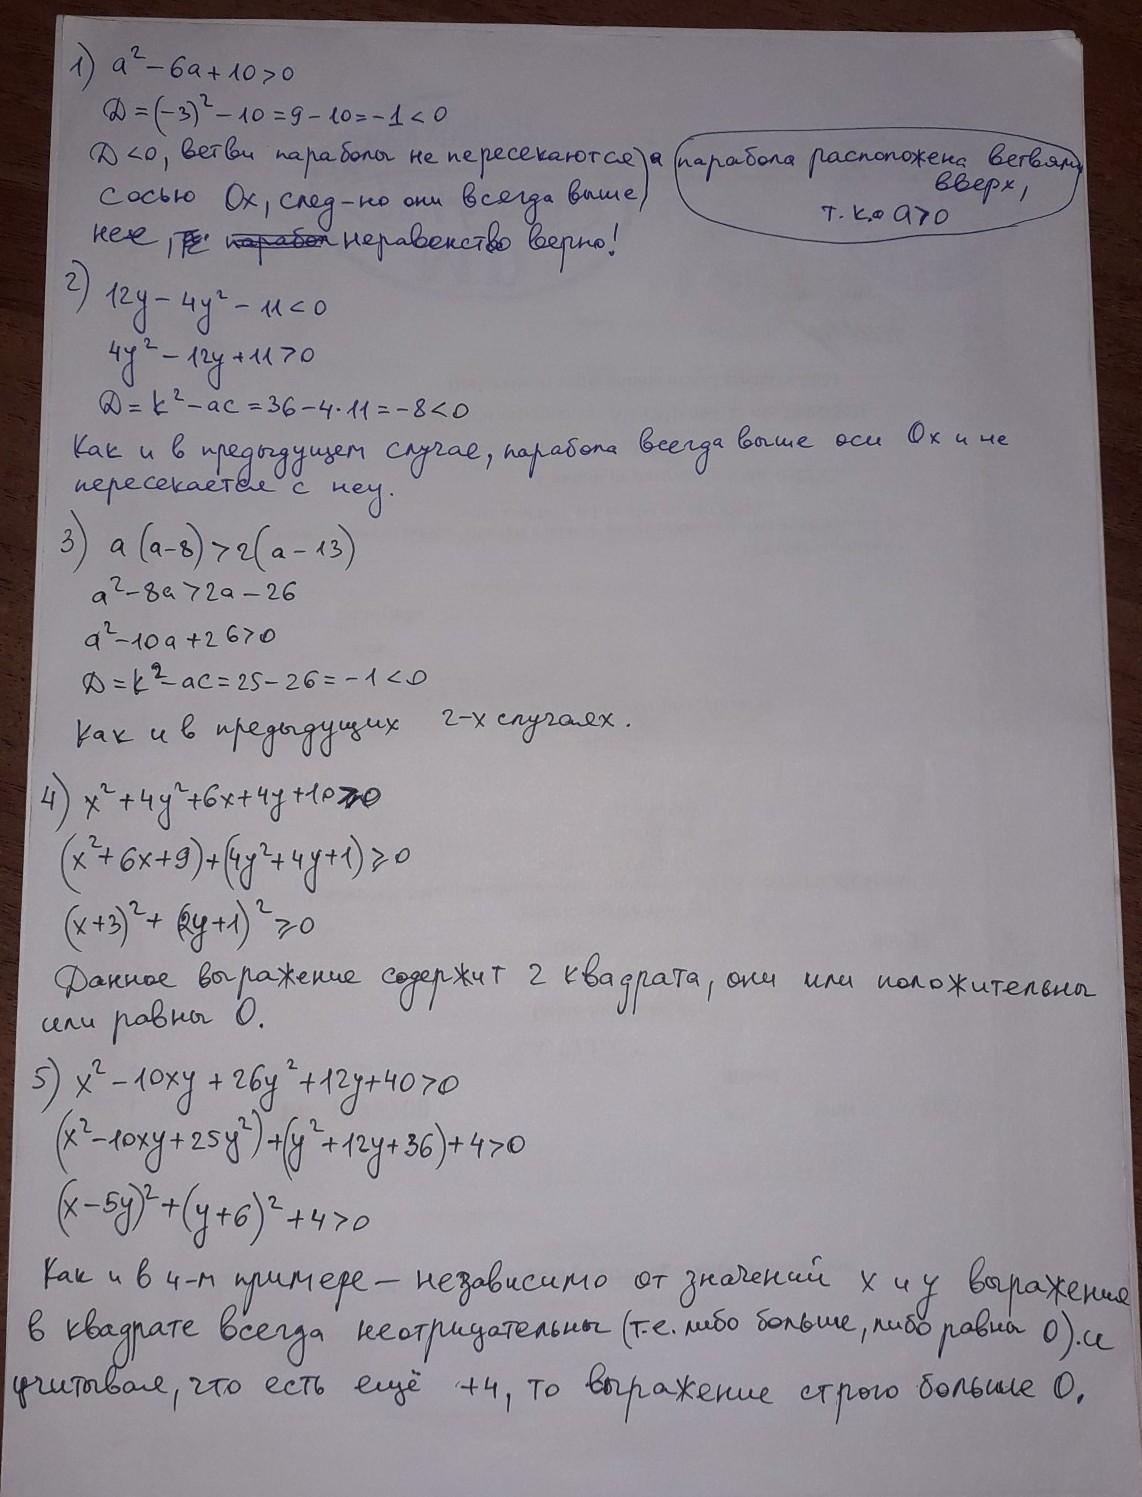 1) a² - 6a + 10 > 0
D = (-3)² - 10 = 9 - 10 = -1 < 0
D < 0, ветви параболы не пересекаются) а (парабола расположена ветвями
сосью Ox, след-но они всегда выше) вверх,
т.к. a > 0
нее, неравенство верно!
2) 12y - 4y² - 11 < 0
4y² - 12y + 11 > 0
D = k² - ac = 36 - 4·11 = -8 < 0
Как и в предыдущем случае, парабола всегда выше оси Ox и не
пересекается с ней.
3) a(a-8) > 2(a-13)
a² - 8a > 2a - 26
a² - 10a + 26 > 0
D = k² - ac = 25 - 26 = -1 < 0
Как и в предыдущих 2-х случаях.
4) x² + 4y² + 6x + 4y + 10 ⩾ 0
(x² + 6x + 9) + (4y² + 4y + 1) ⩾ 0
(x+3)² + (2y+1)² ⩾ 0
Данное выражение содержит 2 квадрата, они или положительны
или равны 0.
5) x² - 10xy + 26y² + 12y + 40 > 0
(x² - 10xy + 25y²) + (y² + 12y + 36) + 4 > 0
(x - 5y)² + (y + 6)² + 4 > 0
Как и в 4-м примере — независимо от значений x и y выражения
в квадрате всегда неотрицательны (т.е. либо больше, либо равны 0). и
учитывая, что есть ещё +4, то выражение строго больше 0.